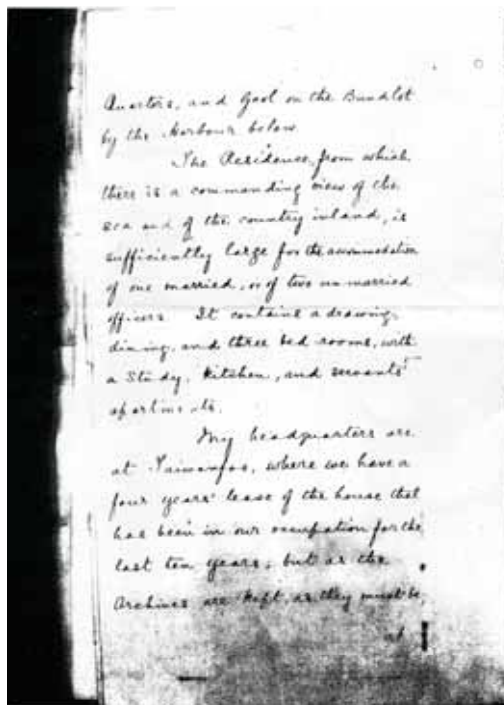 Quarters, and Gaol on the Bundlot
by the Harbour below.
The Residence, from which
there is a commanding view of the
sea and of the country inland, is
sufficiently large for the accommodation
of one married, or of two unmarried
officers. It contains a drawing,
dining, and three bed rooms, with
a Study, Kitchen, and servants'
apartments.
My headquarters are
at Taiwanfoo, where we have a
four years' lease of the house that
has been in our occupation for the
last ten years; but as the
Archives are kept, as they must be,
at